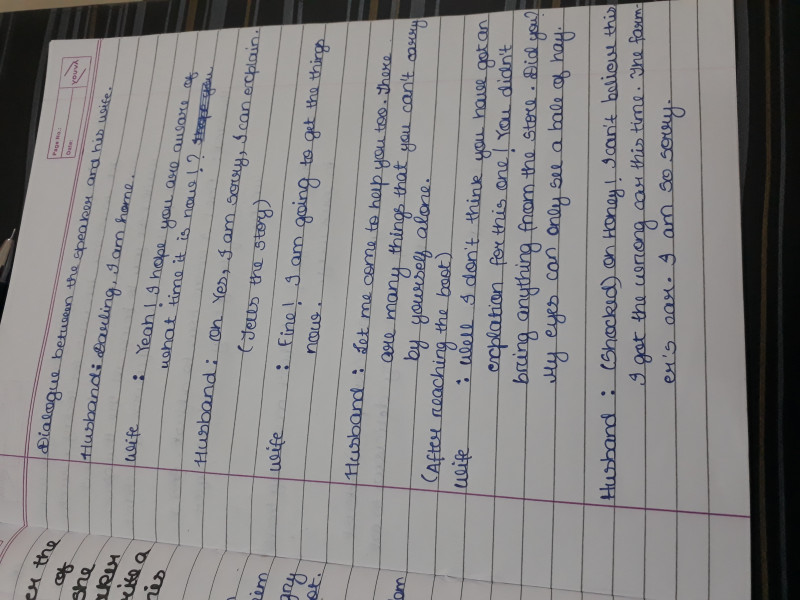 PAGE NO.:
DATE:
YOUVA
Dialogue between the speaker and his wife.
Husband: Darling, I am home.
Wife : Yeah! I hope you are aware of
what time it is now!?
Husband: Oh Yes, I am sorry, I can explain.
(Tells the story)
Wife : Fine! I am going to get the things
now.
Husband : Let me come to help you too. There
are many things that you can't carry
by yourself alone.
(After reaching the boot)
Wife : Well I don't think you have got an
explation for this one! You didn't
bring anything from the store. Did you?
My eyes can only see a bale of hay.
Husband : (Shocked) Oh Honey! I can't believe this
I got the wrong car this time. The farm-
er's car. I am so sorry.
er the
of
she
aker
rite a